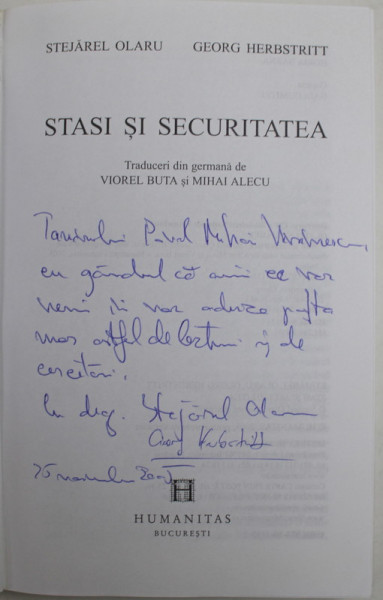 STEJĂREL OLARU GEORG HERBSTRITT
STASI ȘI SECURITATEA
Traduceri din germană de
VIOREL BUTA și MIHAI ALECU
Tânărului Pavel Mihai
cu gândul că anii ce vor
veni îi vor aduce
astfel de lecturi și de
cercetări.
Cu drag, Stejărel Olaru
Georg Herbstritt
25 noiembrie
H
HUMANITAS
BUCUREȘTI